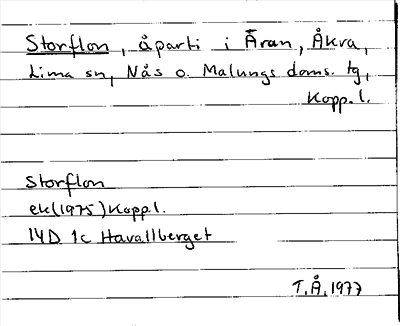 Storflon, åparti i Äran, Åkra,
Lima sn, Nås o. Malungs doms. tg,
Kopp. l.
Storflon
ek(1975) Kopp l.
14D 1c Havallberget
T.Å. 1977